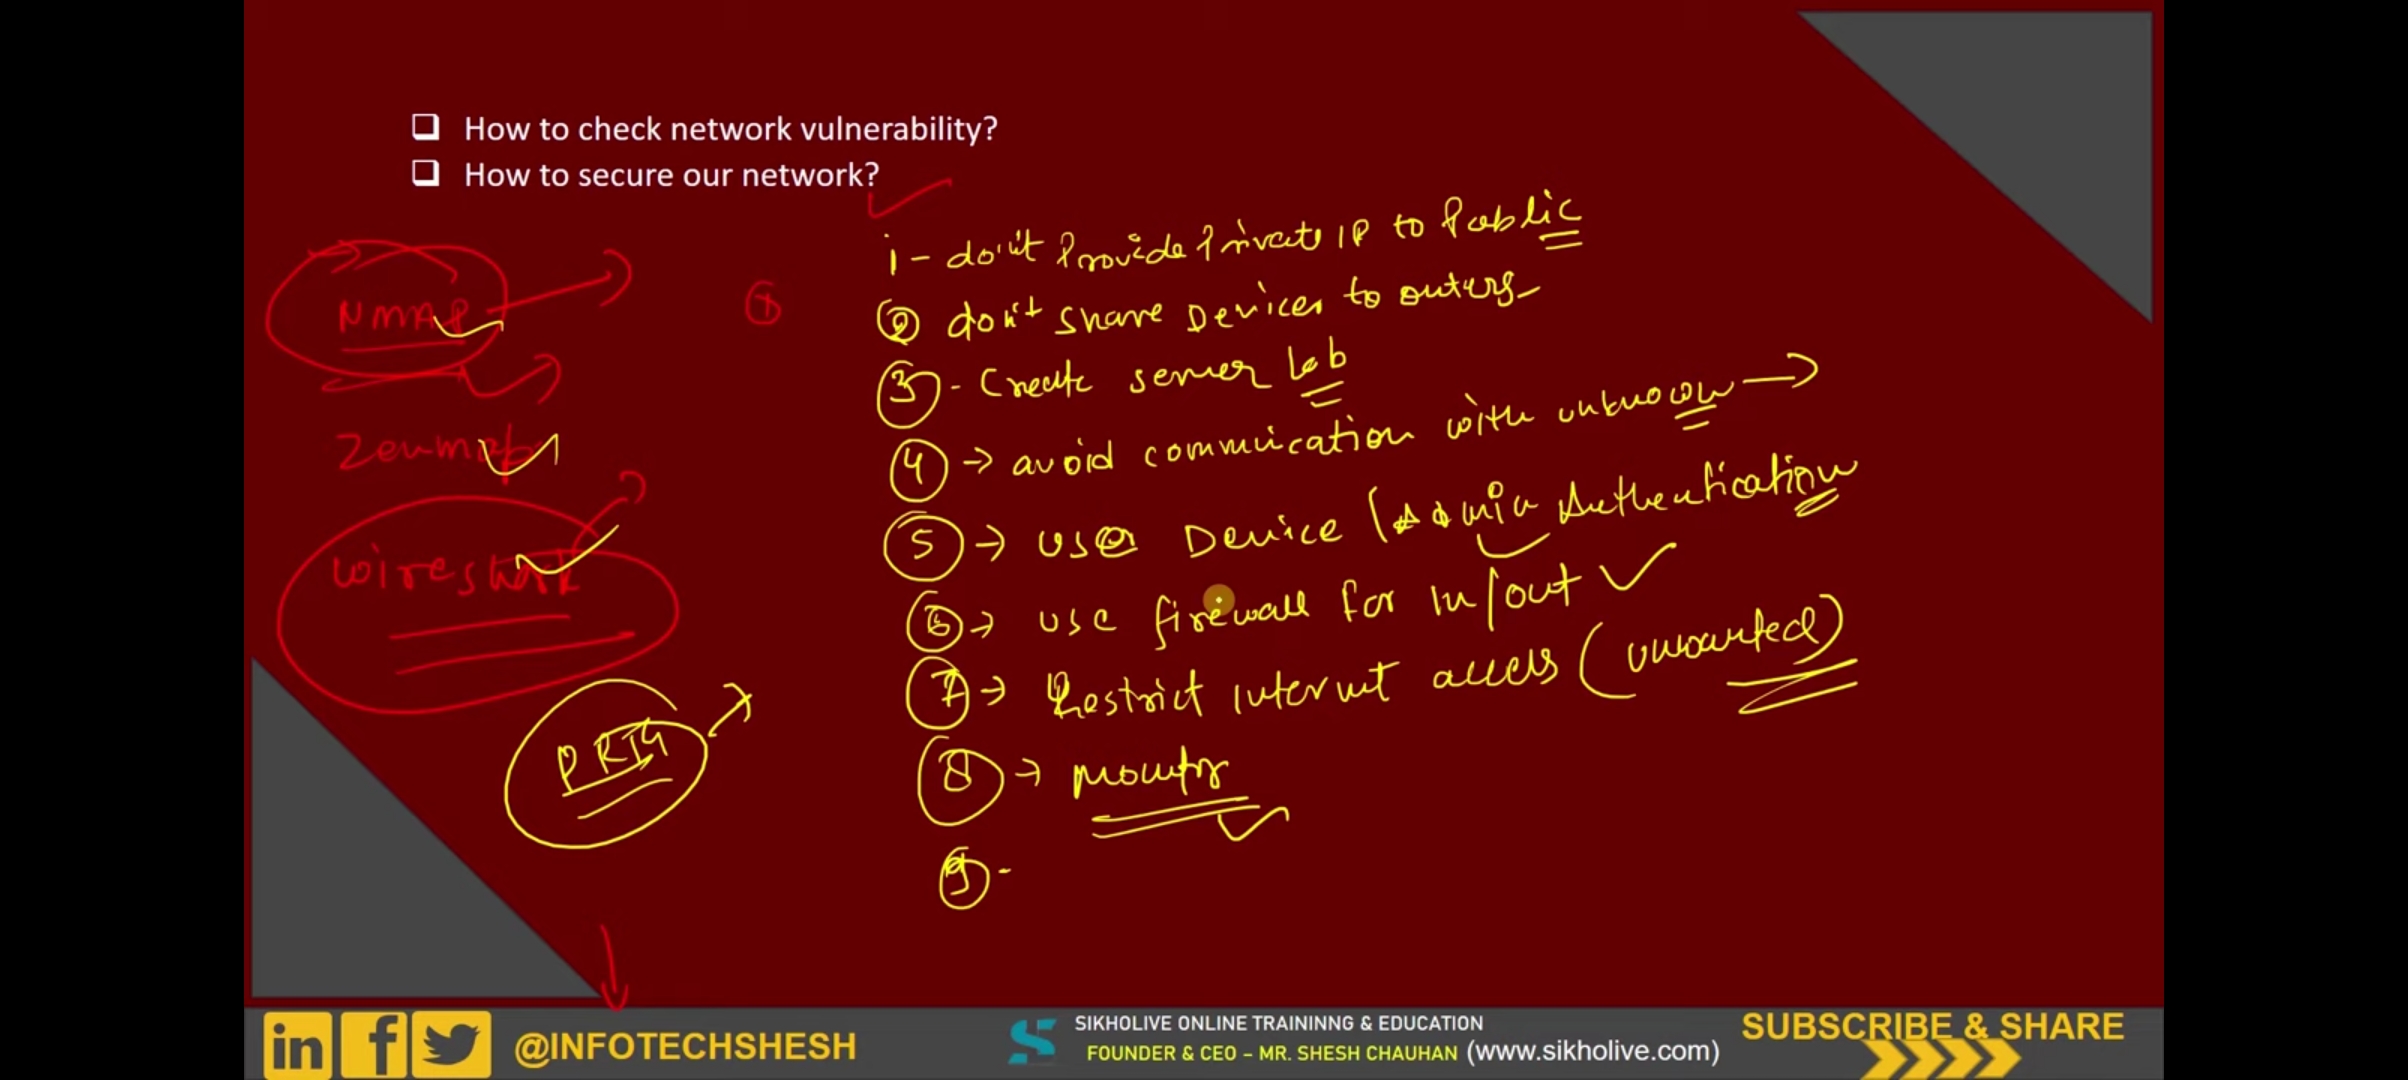 How to check network vulnerability?
How to secure our network?
1 - don't Provide Private IP to Public
② don't share Devices to outers
③ - Create server Lab
④ → avoid commuication with unknown →
⑤ → use Device (Admin Authentication
⑥ → use firewall for In/out ✓
⑦ → Restrict Internet access (unwanted)
⑧ → monitor
⑨ -
①
NMAP
Zenmap
wireshark
PRTG
@INFOTECHSHESH
SIKHOLIVE ONLINE TRAININNG & EDUCATION
FOUNDER & CEO – MR. SHESH CHAUHAN (www.sikholive.com)
SUBSCRIBE & SHARE